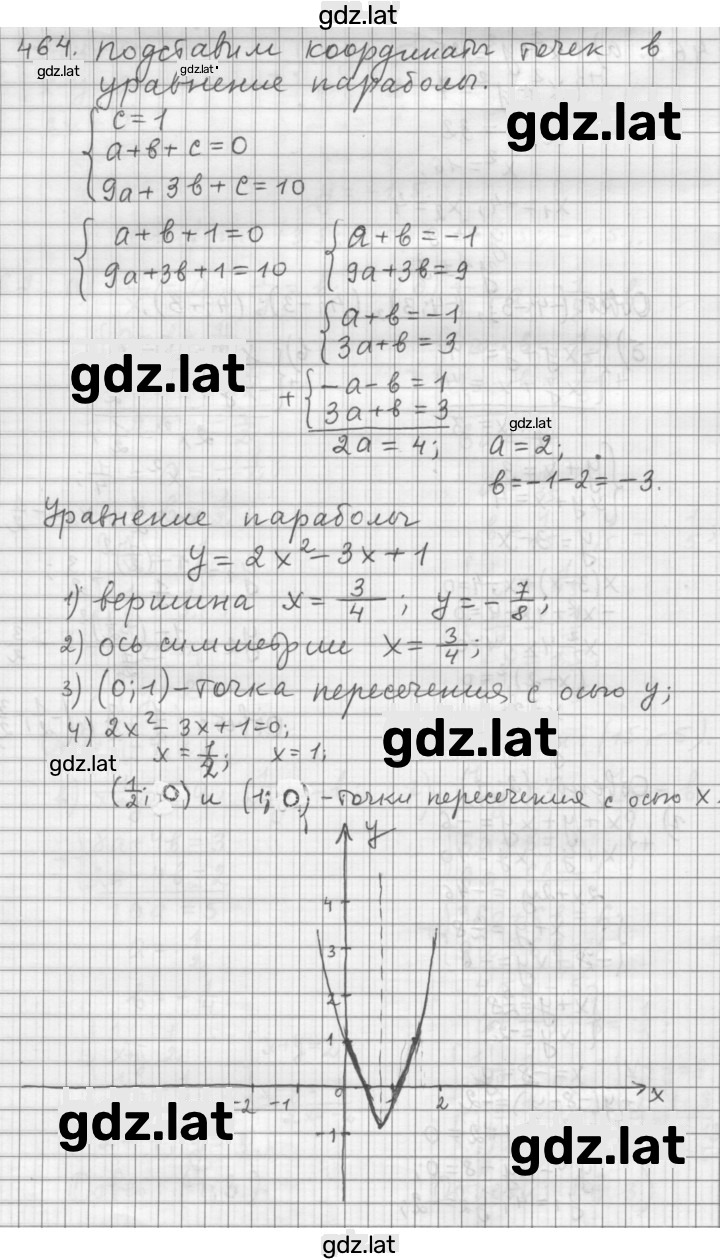 gdz.lat
464. Подставим координаты точек в
gdz.lat gdz.lat
уравнение параболы.
gdz.lat
{ c = 1
a + в + c = 0
9a + 3в + c = 10
{ a + в + 1 = 0
9a + 3в + 1 = 10
{ a + в = -1
9a + 3в = 9
{ a + в = -1
3a + в = 3
gdz.lat
+ { -a - в = 1
3a + в = 3
gdz.lat
2a = 4; a = 2;
в = -1 - 2 = -3.
Уравнение параболы
y = 2x² - 3x + 1
1) вершина x = 3/4; y = -7/8;
2) ось симметрии x = 3/4;
3) (0; 1) - точка пересечения с осью y;
4) 2x² - 3x + 1 = 0;
gdz.lat
x = 1/2; x = 1;
gdz.lat
(1/2; 0) и (1; 0) - точки пересечения с осью x.
y
4
3
2
1
0 1 2 x
-2 -1
-1
gdz.lat
gdz.lat
gdz.lat